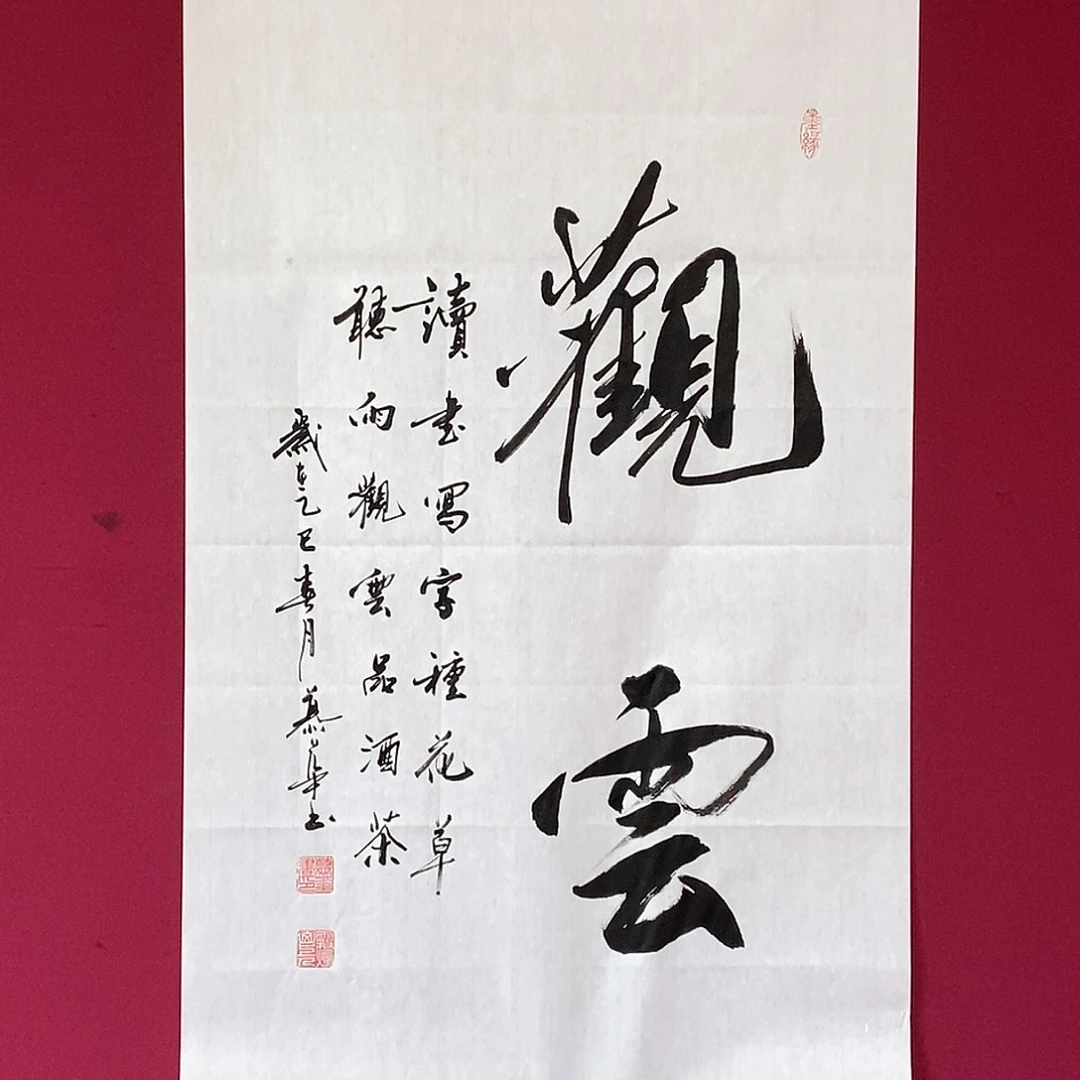 觀雲
讀书寫字種花草
聽雨觀雲品酒茶
歲在乙巳春月慕華书
墨緣